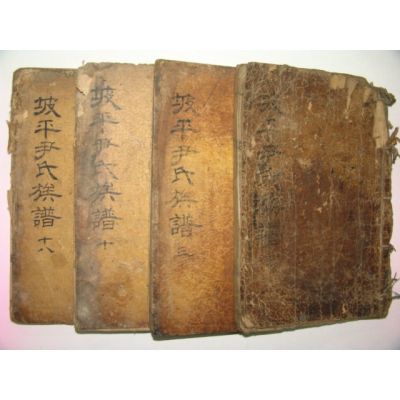 坡平尹氏族譜 十八
坡平尹氏族譜 十
坡平尹氏族譜 三
坡平尹氏族譜